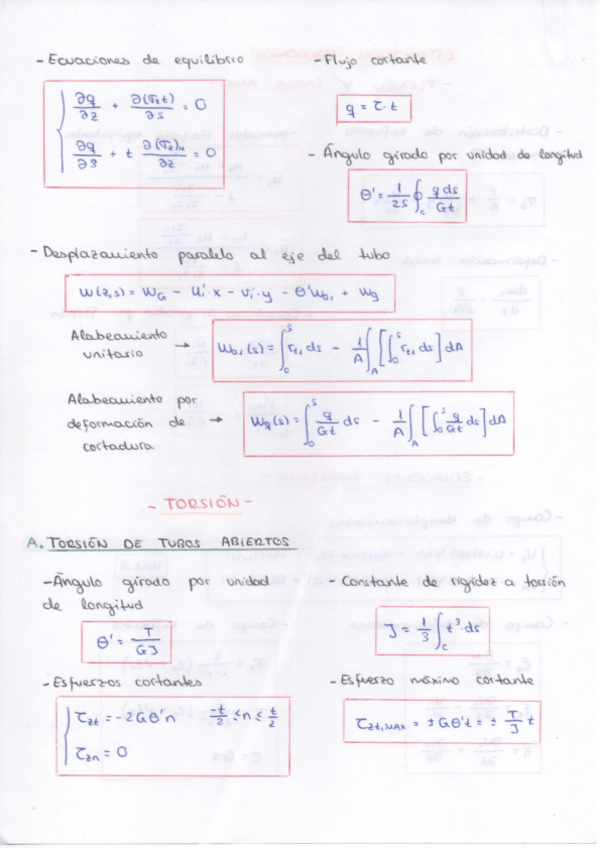 - Ecuaciones de equilibrio
∂q/∂z + ∂(σₛt)/∂s = 0
∂q/∂s + t ∂(σz)ₙ/∂z = 0
- Flujo cortante
q = τ·t
- Ángulo girado por unidad de longitud
θ' = 1/2S ∮c q ds/Gt
- Desplazamiento paralelo al eje del tubo
w(z,s) = WG - u'·x - v'·y - θ'
Alabeamiento
unitario →
(s) = ∫₀ˢ ds - 1/A ∫A [∫₀ˢ ds] dA
Alabeamiento por
deformación de →
cortadura
Wq(s) = ∫₀ˢ q/Gt ds - 1/A ∫A [∫₀ˢ q/Gt ds] dA
- TORSIÓN -
A. TORSIÓN DE TUBOS ABIERTOS
- Ángulo girado por unidad
de longitud
θ' = T/GJ
- Constante de rigidez a torsión
J = 1/3 ∫c t³·ds
- Esfuerzos cortantes
τzt = -2Gθ'n -t/2 ≤ n ≤ t/2
τzn = 0
- Esfuerzo máximo cortante
τzt,MAX = ± Gθ't = ± T/J t